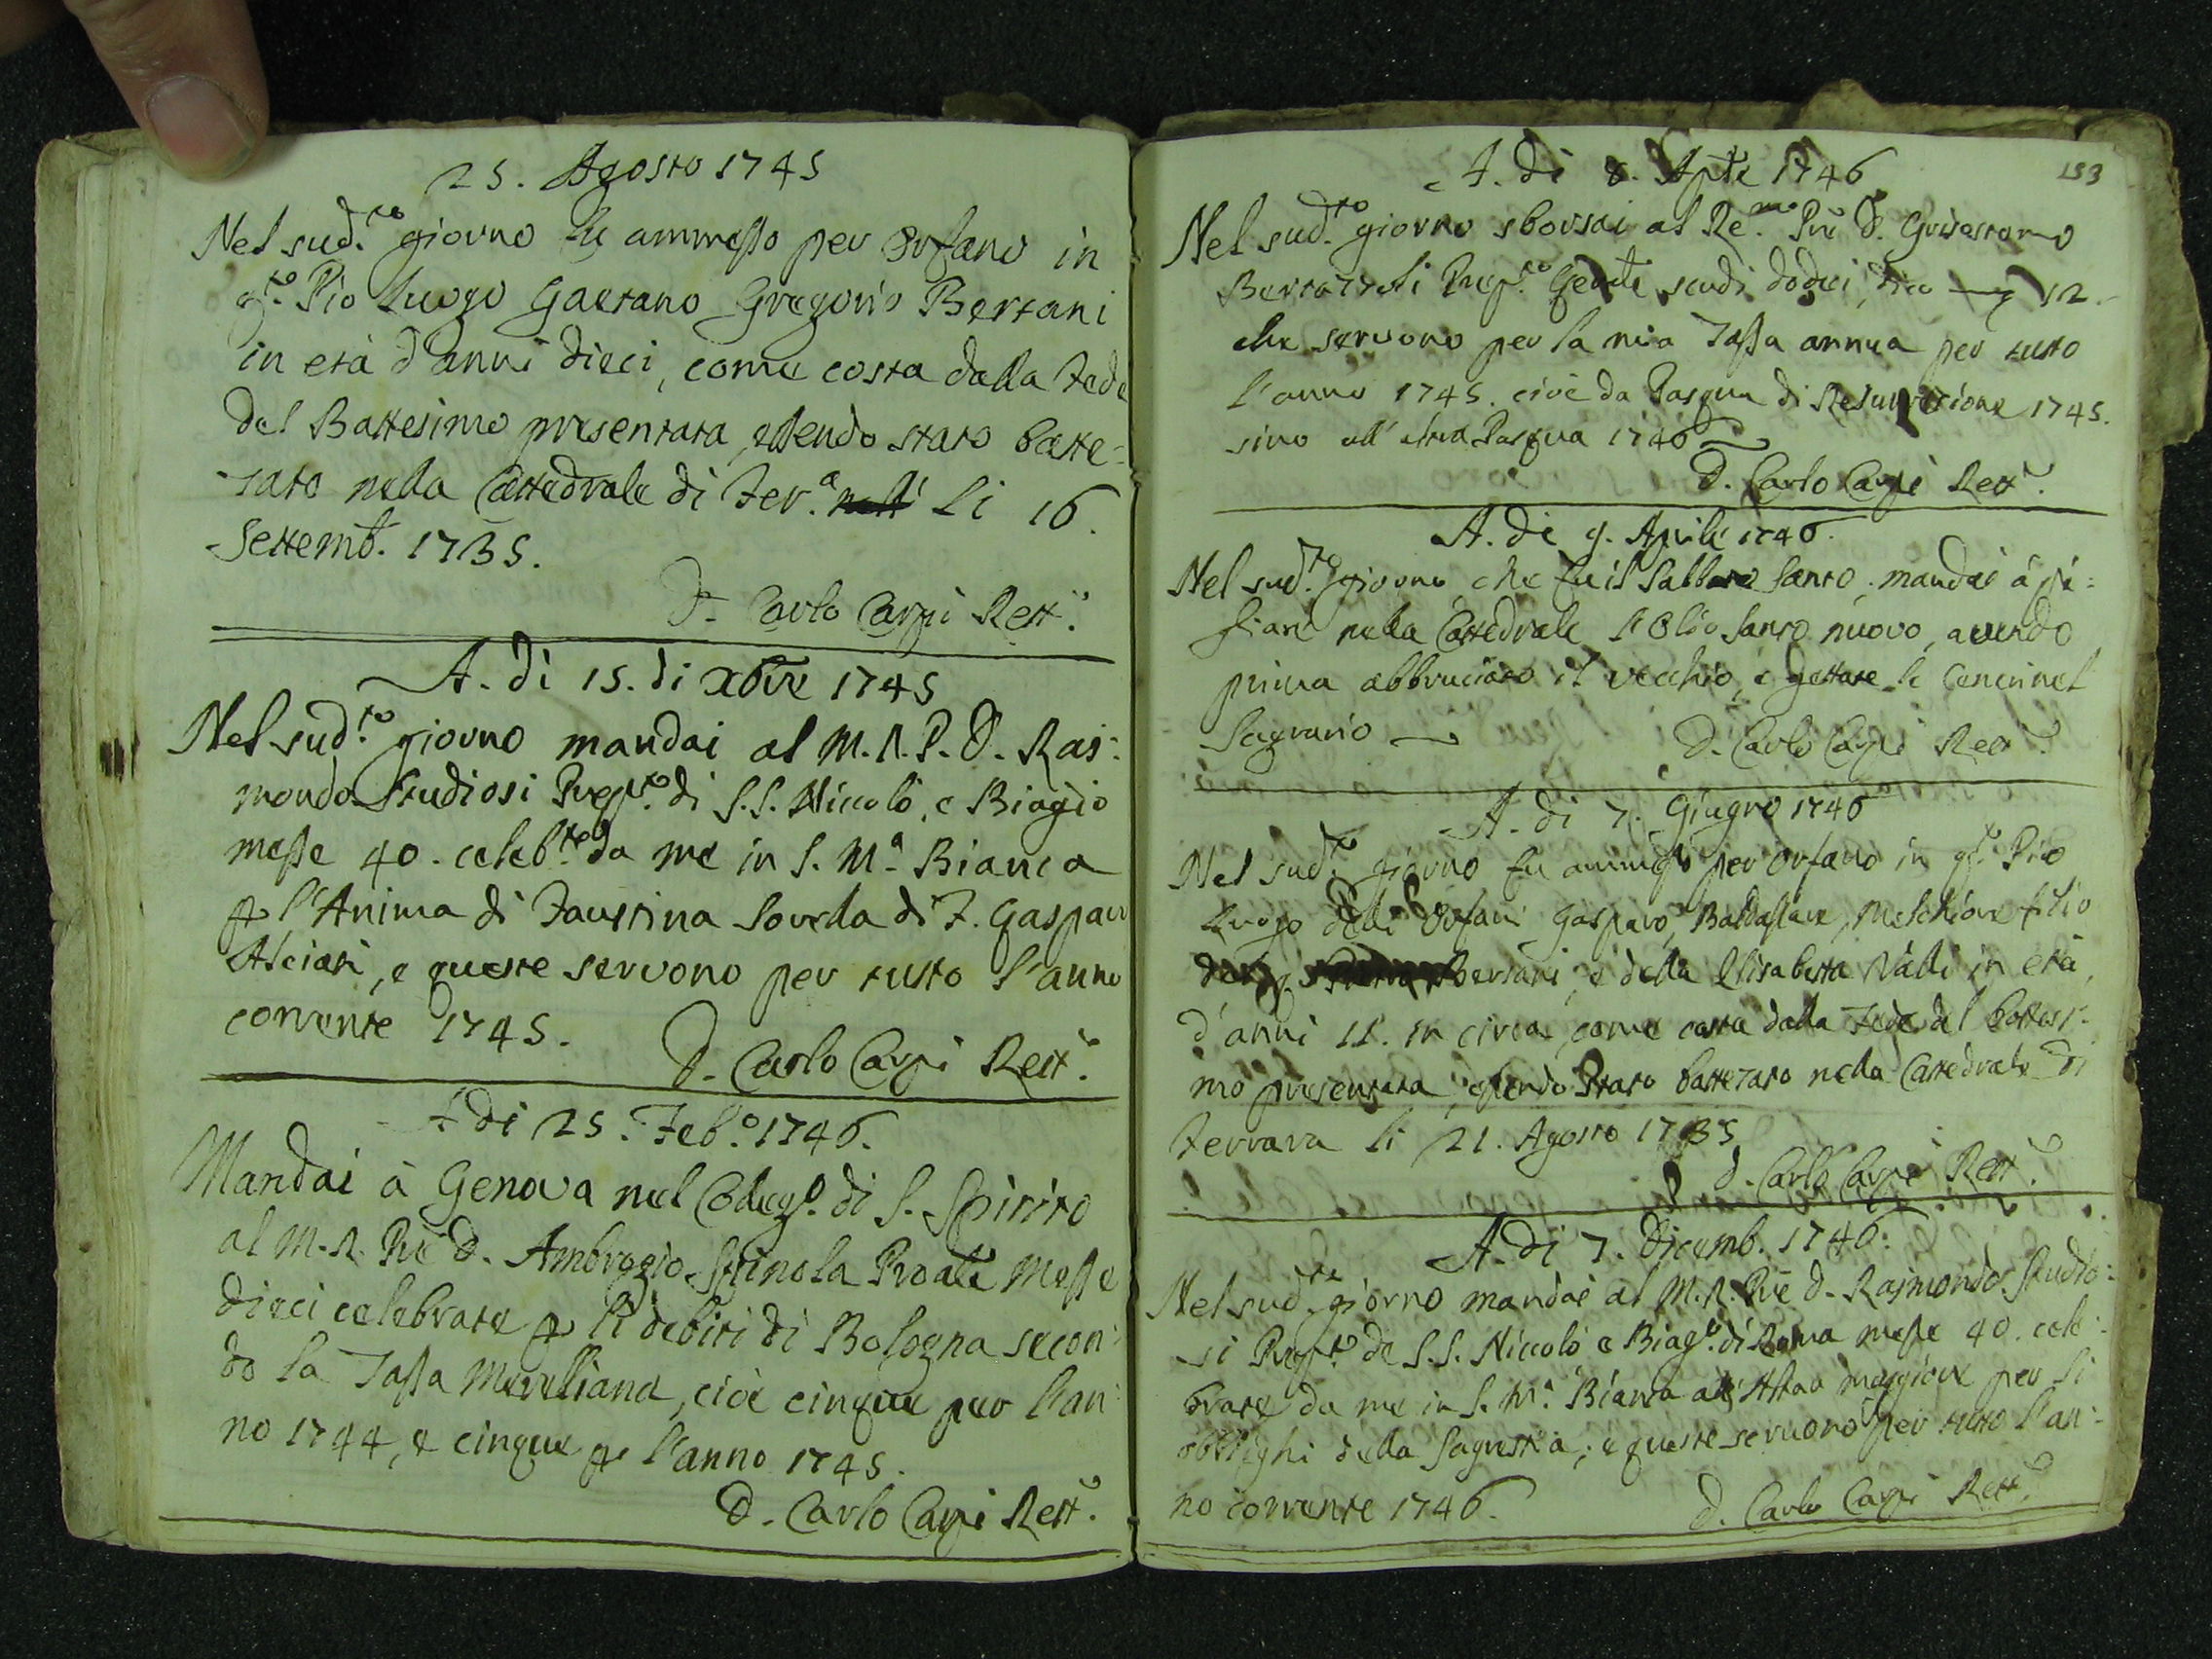 25. Agosto 1745
Nel sud.to giorno fu ammesso per Orfano in
q.to Pio Luogo Gaetano Gregorio Bertani
in età d'anni dieci, come costa dalla fede
del Battesimo presentata, essendo stato batte=
zato nella Cattedrale di Fer.a li 16.
Settemb. 1735.
D. Carlo Carpi Rett.e
A. di 15. di Xbre 1745
Nel sud.to giorno mandai al M. R. P. D. Rai:
mondo Studiosi Prep.to di S.S. Niccolò, e Biagio
messe 40. celeb.te da me in S. M.a Bianca
p l'Anima di Faustina Sorella di F. Gaspar
Alciati, e queste servono per tutto l'anno
corrente 1745.
D. Carlo Carpi Rett.e
A di 25. Feb.o 1746.
Mandai à Genova nel Colleg.o di S. Spirito
al M. R. Pre D. Ambrogio Spinola Proale Messe
dieci celebrate p li debiti di Bologna secon:
do la Tassa Merelliana, cioè cinque per l'an:
no 1744, e cinque p l'anno 1745.
D. Carlo Carpi Rett.e
153
A. di 8. Aple 1746
Nel sud.to giorno sborsai al Re.mo Pre D. Grisostomo
Bertazzoli Prep.to Genle scudi dodici, dico 12.
che servono per la mia Tassa annua per tutto
l'anno 1745. cioè da Pasqua di Resurrezione 1745.
sino all' altra Pasqua 1746
D. Carlo Carpi Rett.e
A. di 9. Aprile 1746.
Nel sud.to giorno, che fu il Sabbato Santo, mandai à pi:
gliare nella Cattedrale l'Olio Santo nuovo, avendo
prima abbruciato il vecchio, e gettate le Ceneri nel
Sagrario
D. Carlo Carpi Rett.e
A. di 7. Giugno 1746
Nel sud.to giorno fu ammesso per Orfano in q.to Pio
Luogo delli Orfani Gasparo, Baldassare, Melchiore figlio
Bertani, e della Elisabetta Nalli in età,
d'anni 11. in circa, come costa dalla Fede del battesi:
mo presentata, essendo stato battezato nella Cattedrale di
Ferrara li 21. Agosto 1735
D. Carlo Carpi Rett.e
A. di 7. Dicemb. 1746.
Nel sud.to giorno mandai al M. R. Pre D. Raimondo Studio:
si Prep.to de S.S. Niccolò e Biag.o di Roma messe 40. cele:
brate da me in S. M.a Bianca all' Altar maggiore per li
obblighi della Sagrestia; e queste servono per tutto l'an:
no corrente 1746.
D. Carlo Carpi Rett.e